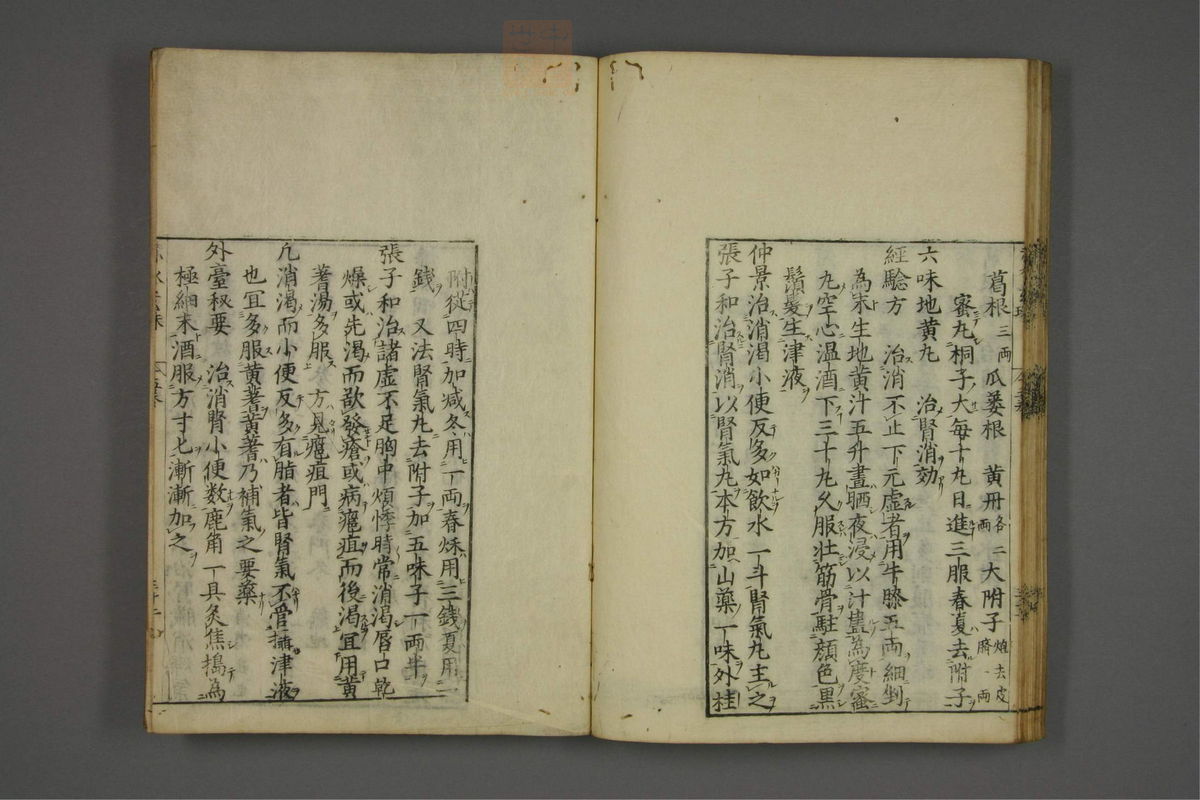 葛根三両瓜蔞根　黄丹各二両大附子炮去皮臍一両
蜜丸桐子大毎十丸日進三服春夏去附子
六味地黄丸　治腎消効
經驗方　治消不止下元虚者用牛膝五両細剉
為末生地黄汁五升晝晒夜浸以汁盡為度蜜
丸空心温酒下三十丸久服壮筋骨駐顔色黒
鬚髪生津液
仲景治消渇小便反多如飲水一斗腎氣丸主之
張子和治腎消以腎氣丸本方加山藥一味外桂
附從四時加减冬用一両春秌用三錢夏用一
錢　又法腎氣丸去附子加五味子一両半
張子和治諸虚不足胸中煩悸時常消渇唇口乾
燥或先渇而欲發瘡或病癰疽而後渇宜用黄
蓍湯多服　方見癰疽門
凢消渇而小便反多有脂者皆腎氣不管攝津液
也宜多服黄蓍黄蓍乃補氣之要藥
外臺秘要　治消腎小便数鹿角一具炙焦搗為
極細末酒服方寸匕漸漸加之